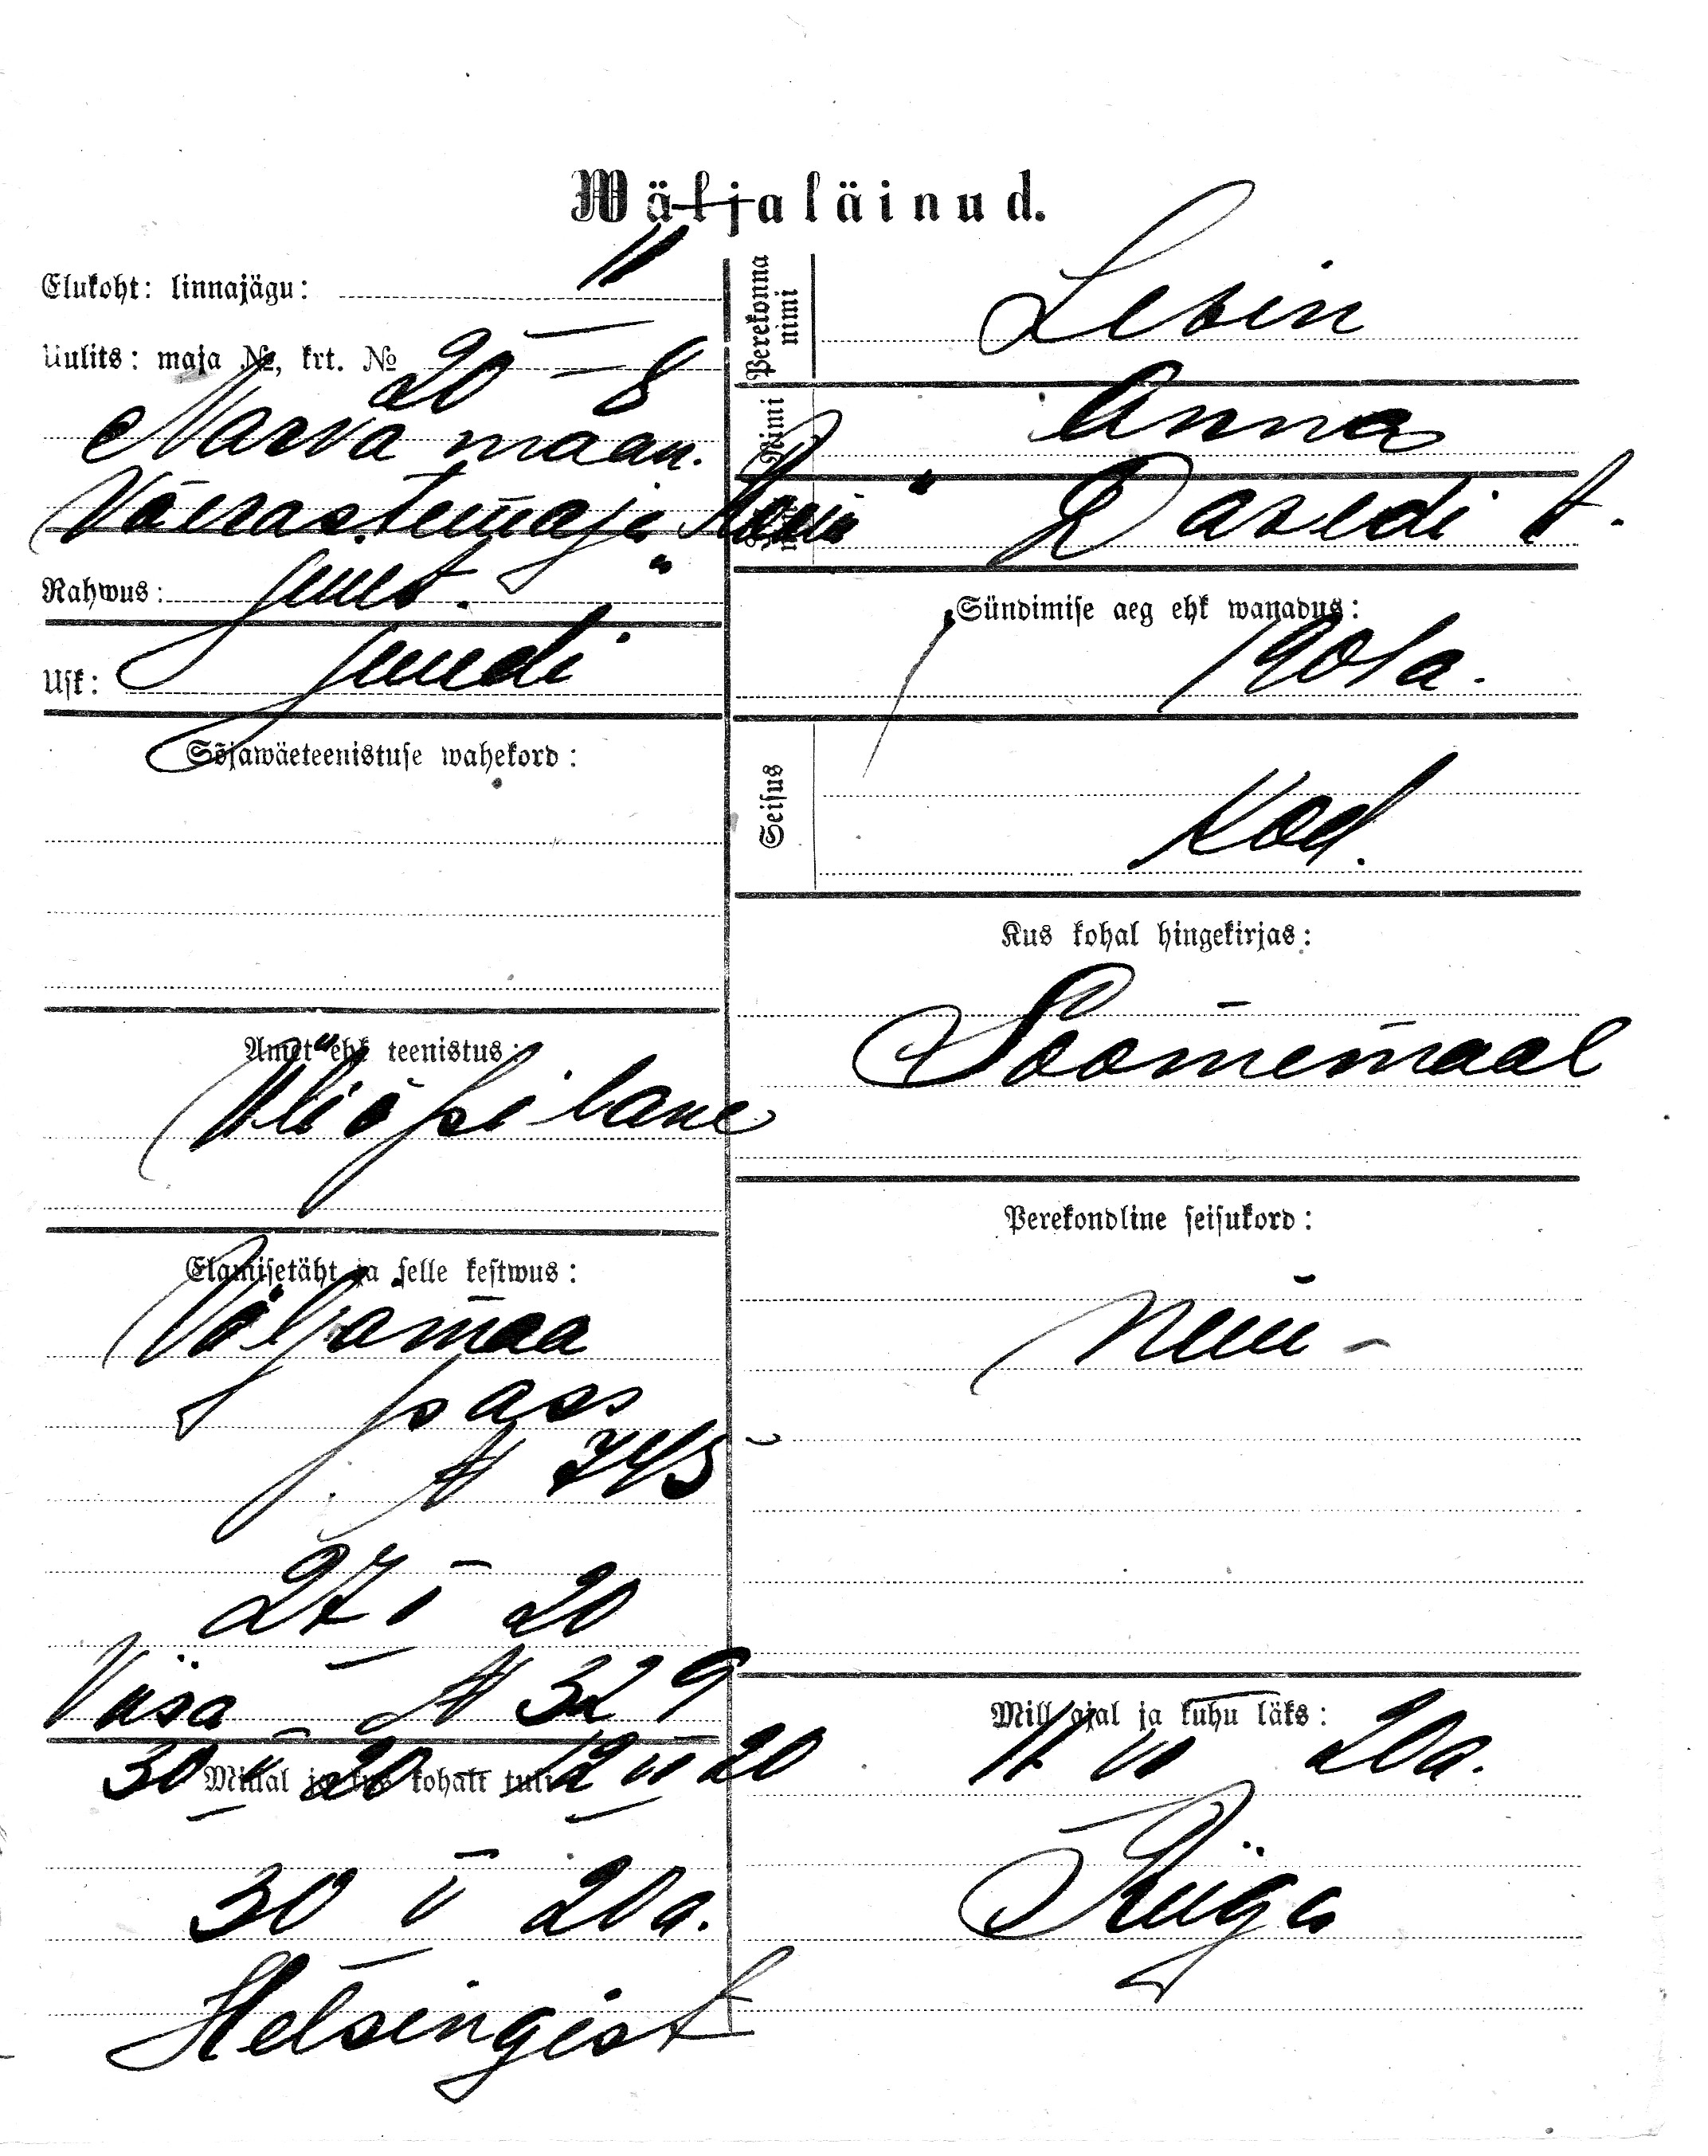 Wäljaläinud.
Elukoht: linnajägu: II
Uulits: maja №, krt. № 20 — 8
Narva maan.
Võerastemaja
Rahwus: Juut.
Usk: Juudi
Sõjawäeteenistuse wahekord:
Amet ehk teenistus:
Üliõpilane
Elamisetäht ja selle kestwus:
Väljamaa
pass
№ 745
27 I 20
Viisa № 329
30 V 20 12 VI 20
Millal ja kus kohalt tuli
30 V 20 a.
Helsingist
Perekonna nimi
Levin
Nimi
Anna
Davedi t.
Sündimise aeg ehk wanadus:
1901a.
Seisus
Kod.
Kus kohal hingekirjas:
Soomemaal
Perekondline seisukord:
Mill ajal ja kuhu läks:
VI 20a.
Riiga